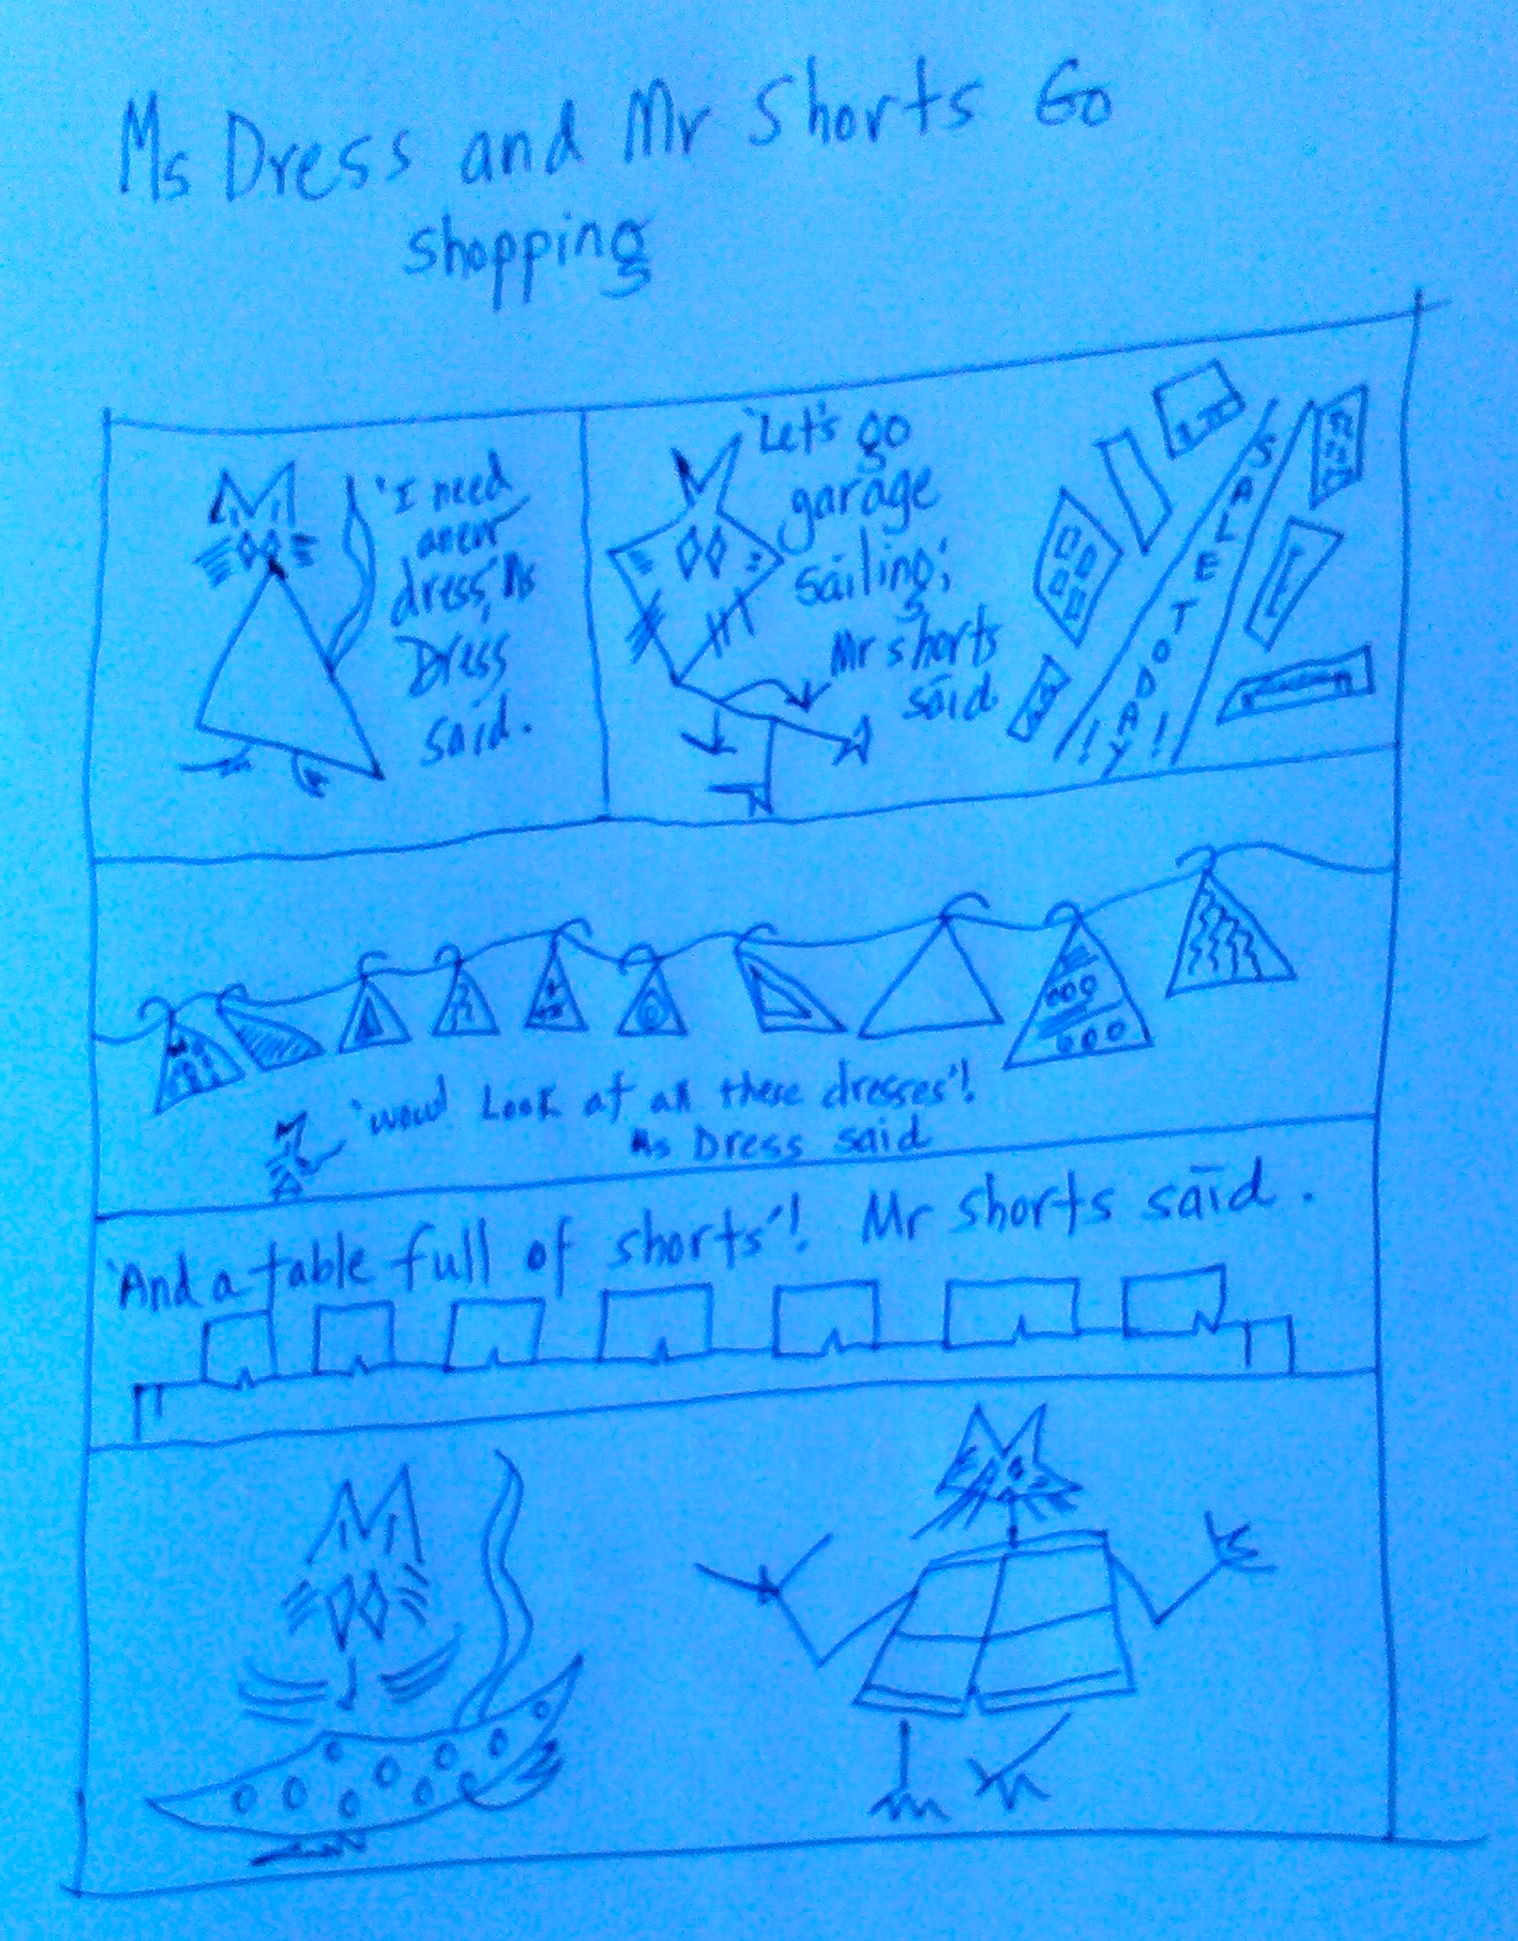 Ms Dress and Mr Shorts Go
shopping
'I need
a new
dress,' Ms
Dress
said.
'Let's go
garage
sailing,'
Mr shorts
said
SALE TODAY
!!
'wow! Look at all these dresses'!
Ms Dress said
'And a table full of shorts'! Mr shorts said.